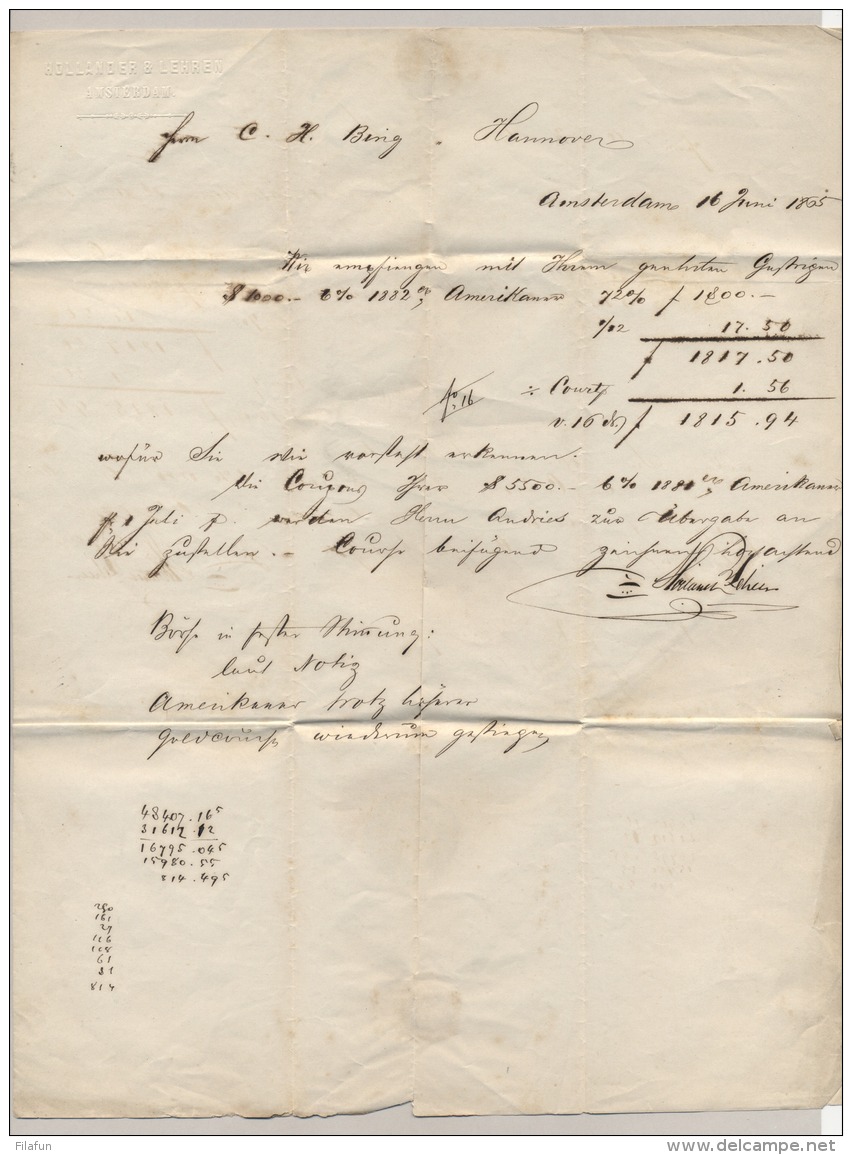 HOLLANDER & LEHREN
AMSTERDAM.
Herrn C. H. Bing, Hannover
Amsterdam 16 Juni 1865
Wir empfiengen mit Ihrem geehrten Gestrigen
$ 1000.- 6% 1882er Amerikaner 72% f 1800.-
17.50
f 1817.50
÷ Court 1.56
v. 16 ds f 1815.94
wofür Sie wie vorsteht erkennen.
Die Coupons Ihrer $ 5500.- 6% 1881er Amerikaner
1 Juli werden Herrn Andries zur Übergabe an
Sie zustellen. - Course beifügend zeichnen hochachtend
Hollander & Lehren
Börse in fester Stimmung:
laut Notiz
Amerikaner trotz höherer
Goldcourse wiederum gestiegen
48407.165
31612.12
16795.045
15980.55
814.495
290
161
27
106
108
61
81
814
Filafun
www.delcampe.net